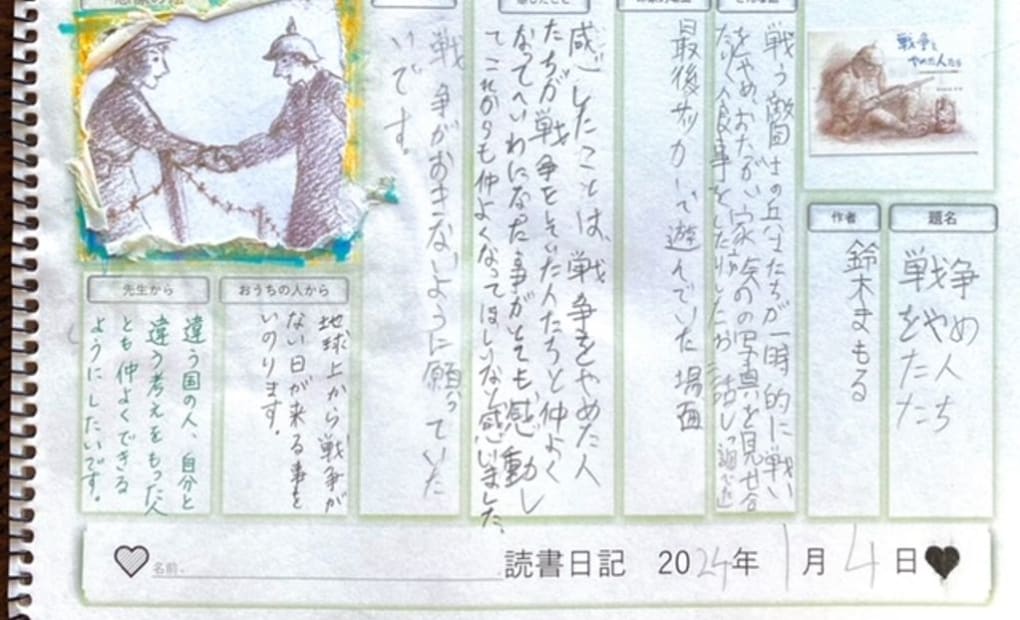 題名
戦争
をやめ
た人
たち
作者
鈴木まもる
戦争を
やめた人たち
戦う敵国士の兵士たちが一時的に戦い
をやめ、おたがい家族の写真を見せ合
ったり食事をしたりしたお話
最後サッカーで遊んでいた場面
感じたことは、戦争をやめた人
たちが戦争をしていた人たちと仲よく
なってへいわになった事がとても感動し
てこれからも仲よくなってほしいなと感いました。
戦争がおきないように願っていた
いです。
おうちの人から
地球上から戦争が
ない日が来る事を
いのります。
先生から
違う国の人、自分と
違う考えをもった人
とも仲よくできる
ようにしたいです。
名前
読書日記 2024年1月4日